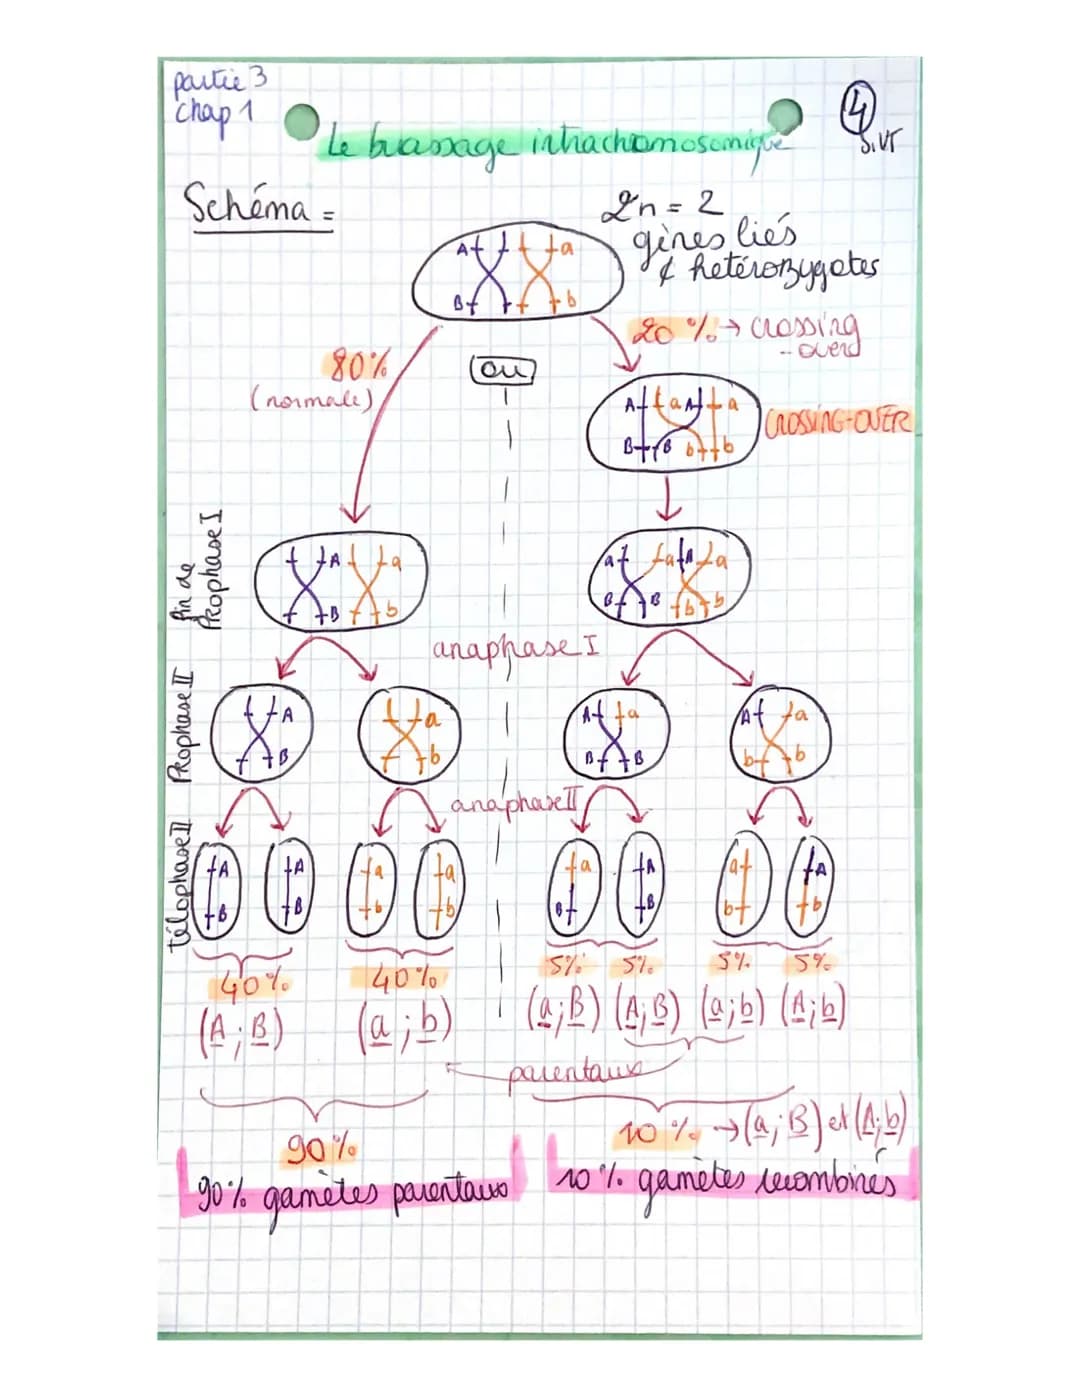 partie 3
chap 1
4
S.VT
Le brassage intrachromosomique
Schéma =
2n = 2
gènes liés
& hétérozygotes
A a
B b
80%
(normale)
ou
20 % → crossing
- over
A a A a
B B b b
CROSSING-OVER
fin de
Prophase I
A a
B b
a a A a
B B b b
anaphase I
Prophase II
A
B
a
b
A a
B B
A a
b b
anaphase II
télophase II
A A a a a A a A
B B b b B B b b
40% 40% 5% 5% 5% 5%
(A ; B) (a ; b) (a;B) (A;B) (a;b) (A;b)
parentaux
90% 10 % → (a ; B) et (A;b)
90% gamètes parentaux 10 % gamètes recombinés